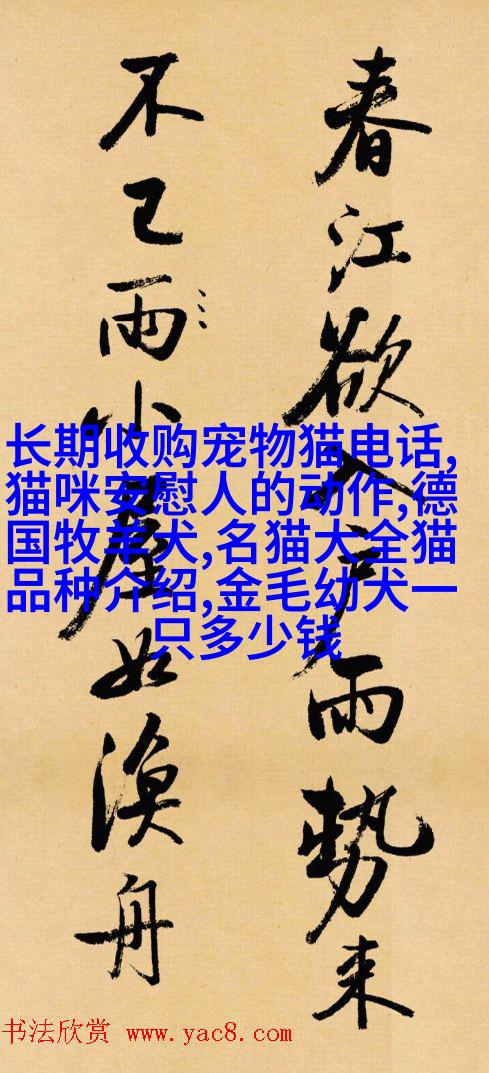 春江欲入户雨勢来
不已雨小屋如漁舟
长期收购宠物猫电话,
猫咪安慰人的动作,德
国牧羊犬,名猫大全猫
品种介绍,金毛幼犬一
只多少钱
书法欣赏 www.yac8.com